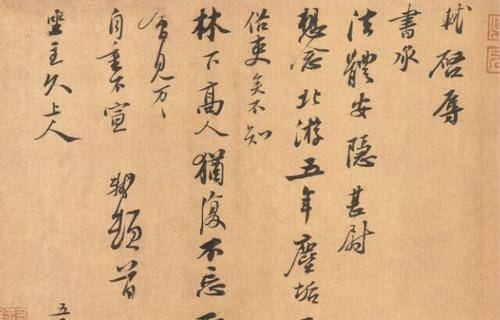 軾啓辱
書承
法體安隱甚尉
想念北游五年塵垢
俗吏矣不知
林下高人猶復不忘
會見万〻
自重不宣 軾頓首
坐主久上人 五